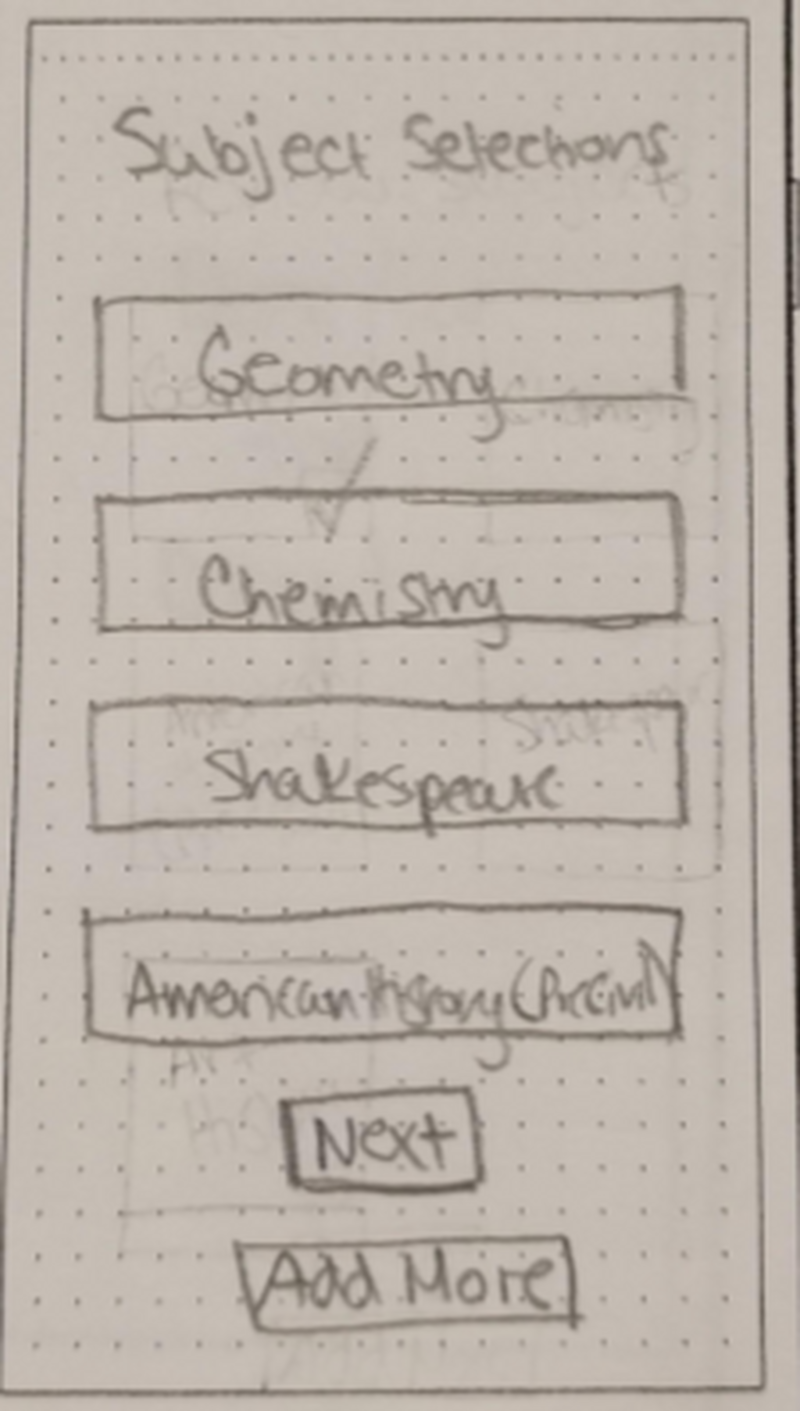 Subject Selections
Geometry
Chemistry
Shakespeare
American History (PreCivil)
Next
Add More